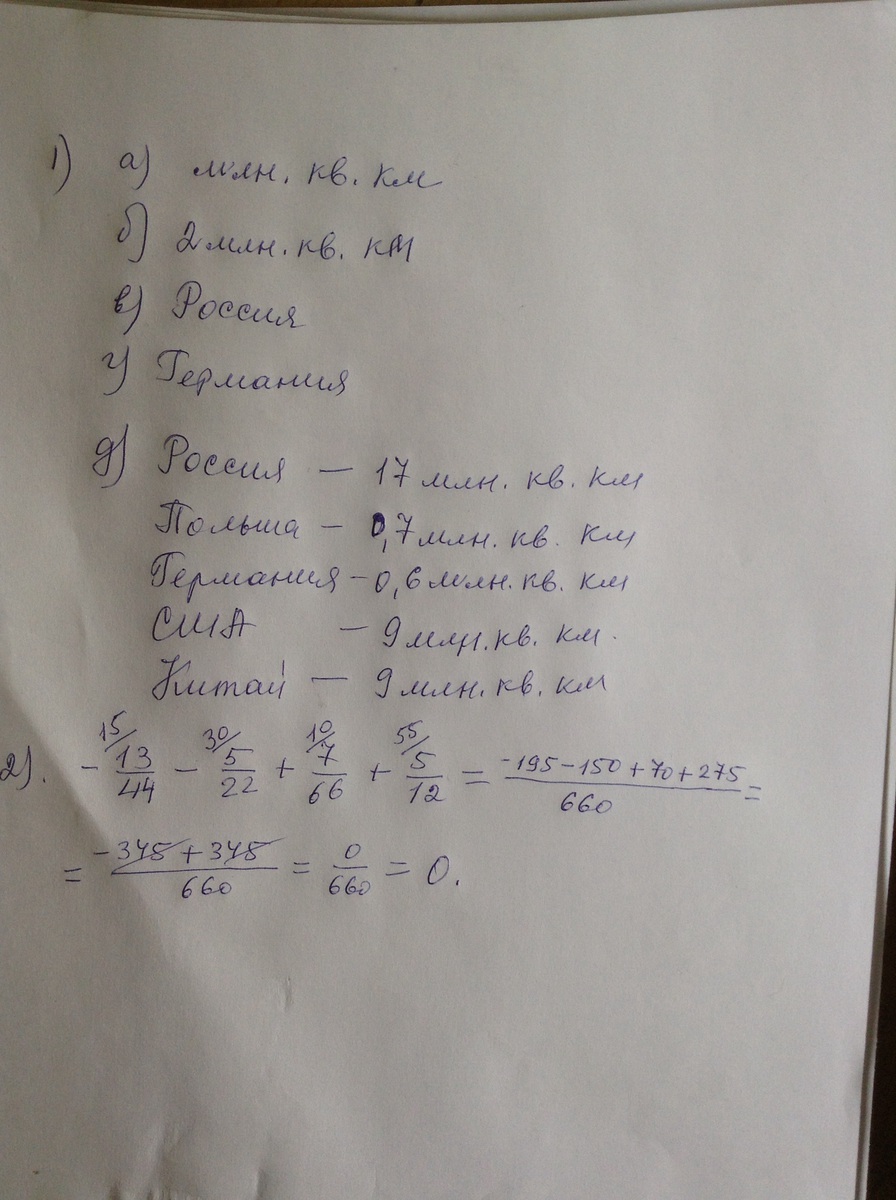 1) а) млн. кв. км
б) 2 млн. кв. км
в) Россия
г) Германия
д) Россия — 17 млн. кв. км
Польша — 0,7 млн. кв. км
Германия — 0,6 млн. кв. км
США — 9 млн. кв. км.
Китай — 9 млн. кв. км
2). - 15/ 13/44 - 30/ 5/22 + 10/ 7/66 + 55/ 5/12 = (-195-150+70+275)/660 =
= (-345+345)/660 = 0/660 = 0.